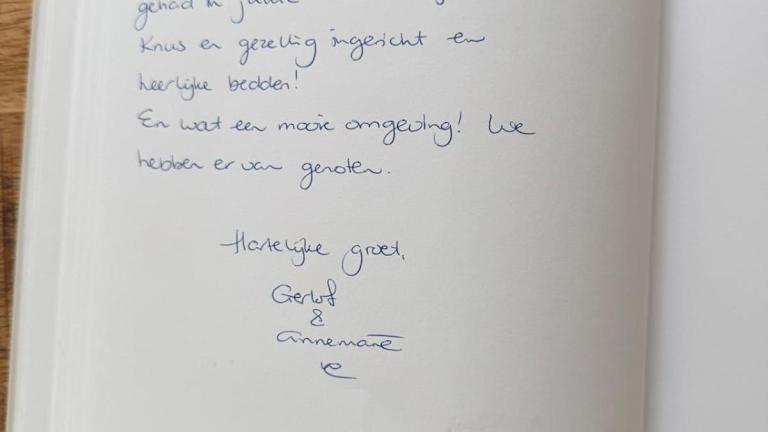 gehad in
Knus en gezellig ingericht en
heerlijke bedden!
En wat een mooie omgeving! We
hebben er van genoten.
Hartelijke groet,
Gerlof
&
Annemarie